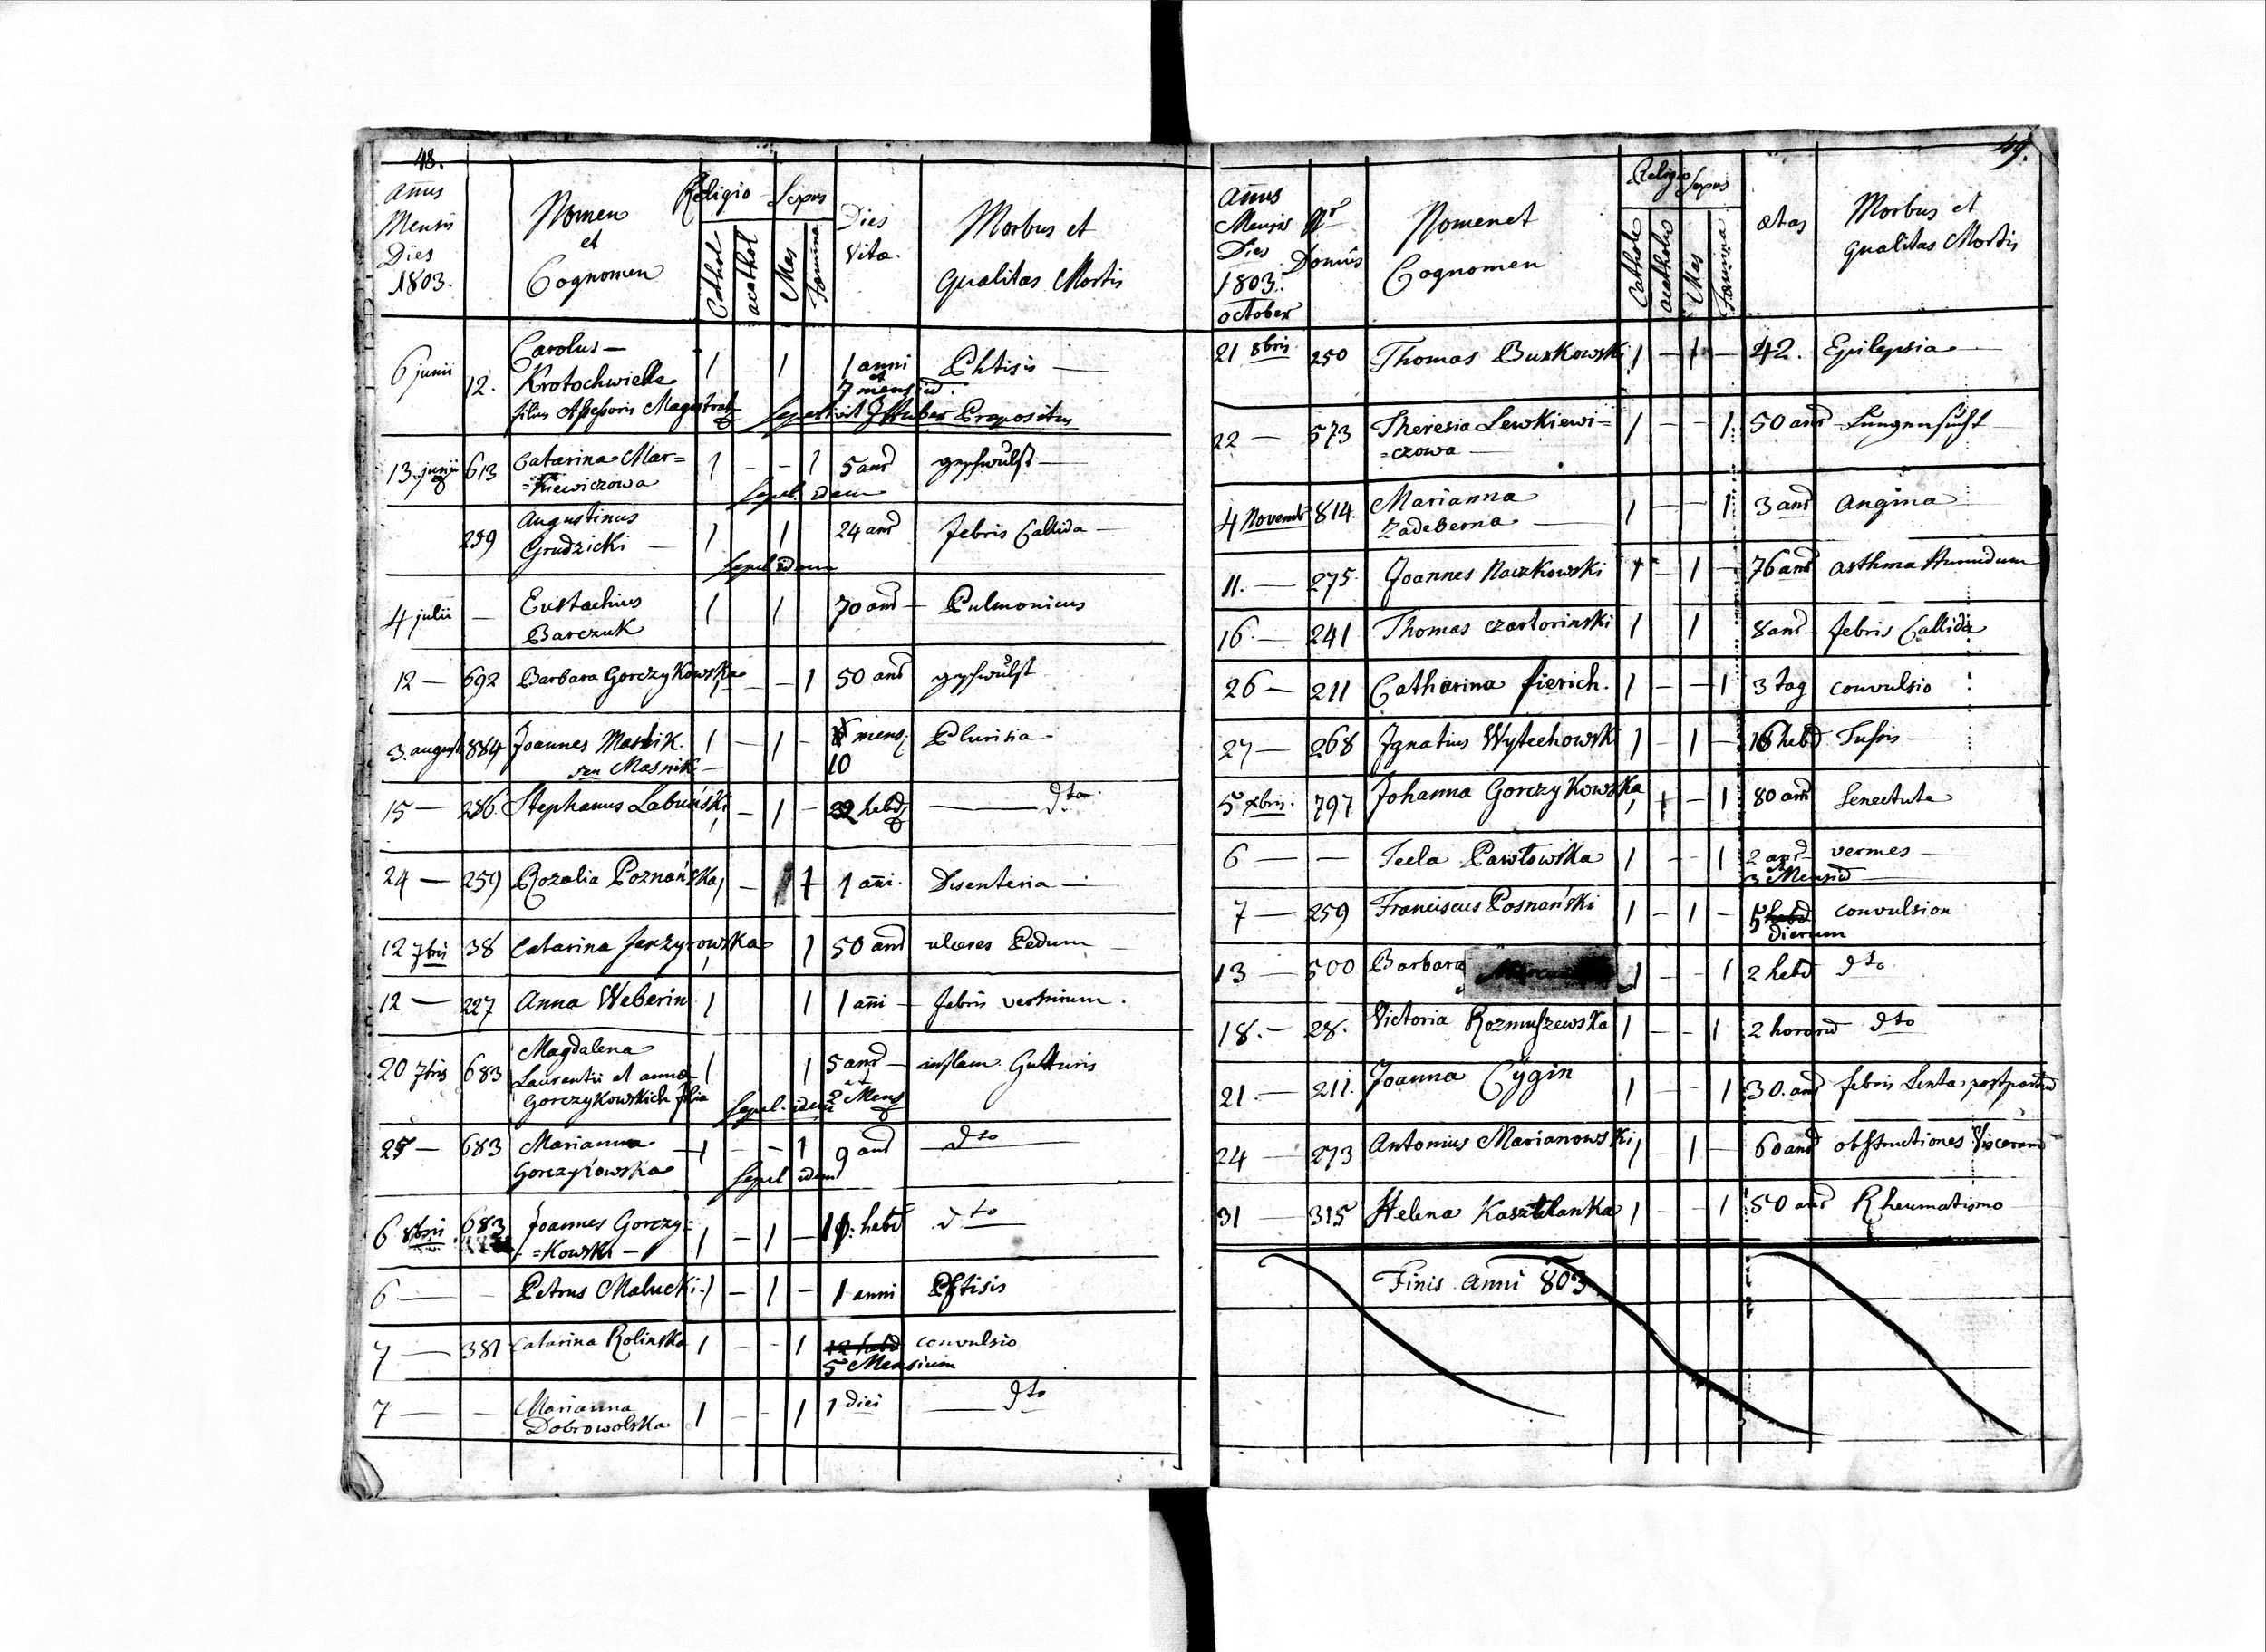 48.
Annus
Mensis
Dies
1803.
Nomen
et
Cognomen
Religio
Cathol
acathol
Sexus
Mas
Fœmina
Dies
Vitæ.
Morbus et
qualitas Mortis
6 junii 12. Carolus —
Krotochwiele 1 1 1 anni Phtisis —
et
7 mens
filius Assessoris Magistrat Sepelivit Praepositus
13 junii 613 Catarina Mar=
=kiewiczowa 1 – – 1 5 ann geschwulst —
Sepel. idem
259 Augustinus
Grudzicki — 1 1 24 ann febris Callida —
Sepel idem
4 julii — Eustachius
Barczuk 1 1 70 ann — Pulmonicus
12 — 692 Barbara Gorczykowska 1 – – 1 50 ann geschwulst
3. august 884 Joannes Maslik. 1 – 1 – mens Plurisia —
seu Masnik — 10
15 — 286. Stephanus Labuński 1 – 1 – 32 hebd — dto
24 — 259 Rozalia Poznańska 1 – 1 1 ani. Disenteria —
12 7bris 38 Catarina Jerzyrowska 1 1 50 ann ulceres Pedum —
12 — 227 Anna Weberin 1 1 1 ani — febris verminum.
20 7bris 683 Magdalena
Laurentii et annæ
Gorczykowskich filia 1 1 5 ann — inflam. Gutturis
et
2 Mens
Sepel. idem
25 — 683 Marianna
Gorczykowska 1 – – 1 9 ann dto
Sepel idem
6 8bris 683 Joannes Gorczy=
=kowski — 1 – 1 – hebd dto
6 — – Petrus Malucki. 1 – 1 – 1 anni Pftisis
7 — 381 Catarina Rolinska 1 – – 1 12 hebd convulsio
5 Mensium
7 — – Marianna
Dobrowolska 1 – – 1 1 diei — dto
49.
Annus
Mensis
Dies
1803.
october
Nr
Domus
Nomen et
Cognomen
Religio
Cathole
acatholes
Sexus
Mas
Fœmina
ætas
Morbus et
qualitas Mortis
21 8bris 250 Thomas Burkowski 1 – 1 – 42. Epilepsia —
22 — 573 Theresia Lewkiewi=
=czowa — 1 – – 1 50 ann Lungensucht
4 Novemb 814. Marianna
Zadeberna — 1 – – 1 3 ann Angina
11. — 275. Joannes Raczkowski 1 – 1 – 76 ann asthma Humidum
16. — 241 Thomas czartorinski 1 1 8 ann febris Callida
26 — 211 Catharina fierich. 1 – – 1 3 tag convulsio
27 — 268 Ignatius Wytechowski 1 – 1 – 16 hebd Tussis —
5 xbris. 797 Johanna Gorczykowska 1 + – 1 80 ann Senectute
6 — — Tecla Pawłowska 1 – – 1 2 ann vermes —
et
3 Mensium
7 — 259 Franciscus Posnański 1 – 1 – 5 hebd convulsion
dierum
13 — 500 Barbara 1 – – 1 2 hebd dto
18. — 28. Victoria Rozmuszewska 1 – – 1 2 horarum dto
21. — 211. Joanna Cÿgin 1 – – 1 30. ann febris Lenta post partum
24 — 273 Antonius Marianowski 1 – 1 – 60 ann obstructiones Viscerum
31 — 315 Helena Kasztelanka 1 – – 1 50 ann Rheumatismo
Finis anni 803